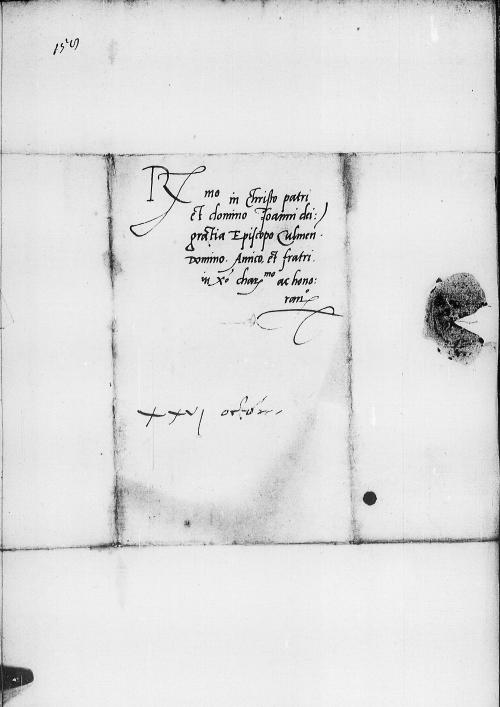 R
mo in Christo patri
et domino Joanni dei
gratia Episcopo Culmen.
Domino. Amico, et fratri
in Xo charmo ac hono:
ran
XXVI octobr.